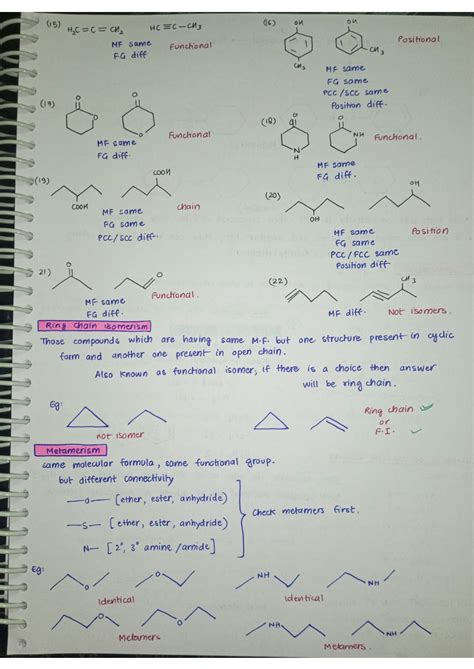 (15) H₂C = C = CH₂ HC ≡ C - CH₃
MF same Functional
FG diff
(16) OH OH
CH₃ CH₃ Positional
MF same
FG same
PCC/SCC same
Position diff.
(17) O O O O
MF same Functional
FG diff.
(18) O O
N H NH Functional.
MF same
FG diff.
(19) COOH COOH
MF same chain
FG same
PCC/SCC diff.
(20) OH OH
MF same Position
FG same
PCC/PCC same
Position diff
21) O O
MF same Functional.
FG diff.
(22) CH₃
MF diff. Not isomers.
Ring Chain isomerism
Those compounds which are having same M.F. but one structure present in cyclic
form and another one present in open chain.
Also known as functional isomer, if there is a choice then answer
will be ring chain.
Eg:
not isomer
Ring chain ✓
or
F.I. ✓
Metamerism
same molecular formula, same functional group.
but different connectivity
—O— [ether, ester, anhydride)
—S— [ether, ester, anhydride)
N— [2°, 3° amine/amide]
Check metamers first.
Eg:
O O NH NH
Identical Identical
O O NH NH
Metamers Metamers.